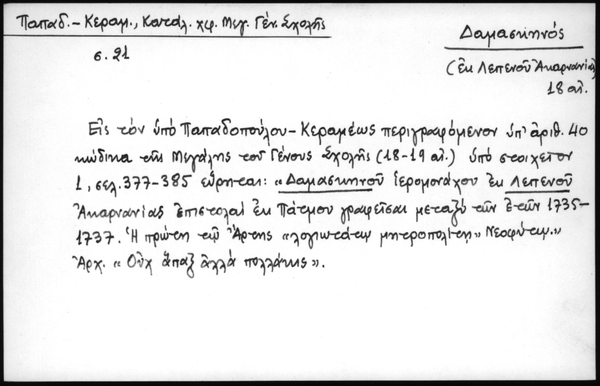 Παπαδ.-Κεραμ., Καταλ. χφ. Μεγ. Γέν. Σχολῆς
σ. 21
Δαμασκηνός
(ἐκ Λεπενοῦ Ἀκαρνανίας)
18 αἰ.
Εἰς τὸν ὑπό Παπαδοπούλου-Κεραμέως περιγραφόμενον ὑπ' ἀριθ. 40
κώδικα τῆς Μεγάλης τοῦ Γένους Σχολῆς (18-19 αἰ.) ὑπό στοιχεῖον
1, σελ. 377-385 εὕρηται: «Δαμασκηνοῦ ἱερομονάχου ἐκ Λεπενοῦ
Ἀκαρνανίας ἐπιστολαὶ ἐκ Πάτμου γραφεῖσαι μεταξύ τῶν ἐτῶν 1735-
1737. Ἡ πρώτη τῷ Ἄρτης «λογιωτάτῳ μητροπολίτῃ» Νεοφύτῳ.»
Ἀρχ. «Οὐχ ἅπαξ ἀλλά πολλάκις».